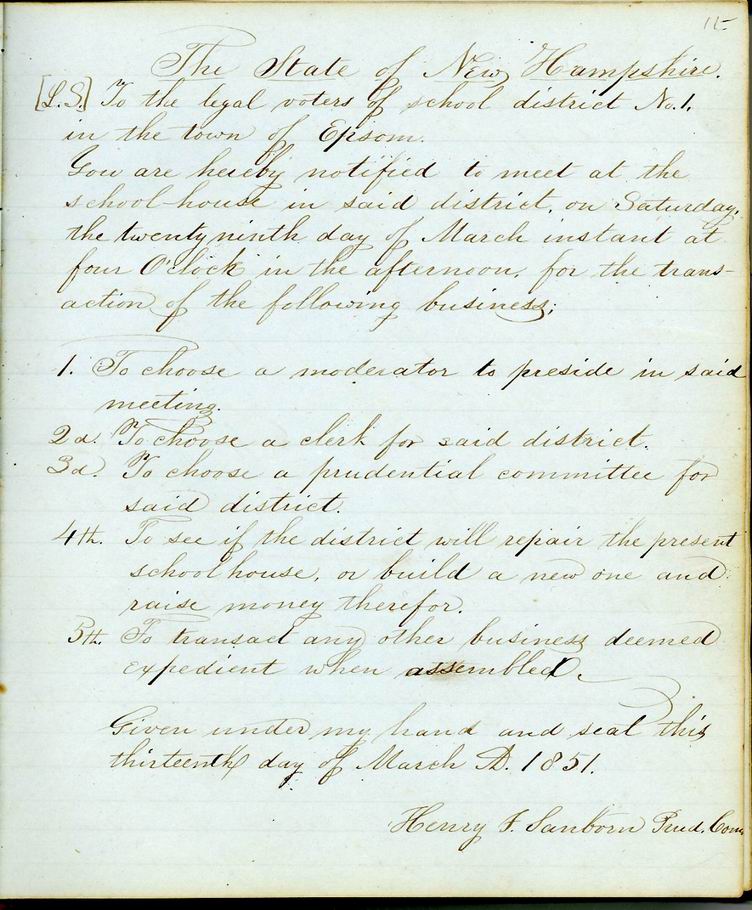 15
The State of New Hampshire.
[L.S.] To the legal voters of school district No. 1.
in the town of Epsom.
You are hereby notified to meet at the
school-house in said district, on Saturday,
the twenty ninth day of March instant at
four O'clock in the afternoon, for the trans-
action of the following business;
1. To choose a moderator to preside in said
meeting.
2d. To choose a clerk for said district.
3d. To choose a prudential committee for
said district.
4th. To see if the district will repair the present
school house, or build a new one and
raise money therefor.
5th. To transact any other business deemed
expedient when assembled.
Given under my hand and seal this
thirteenth day of March A.D. 1851.
Henry F. Sanborn Prud. Com